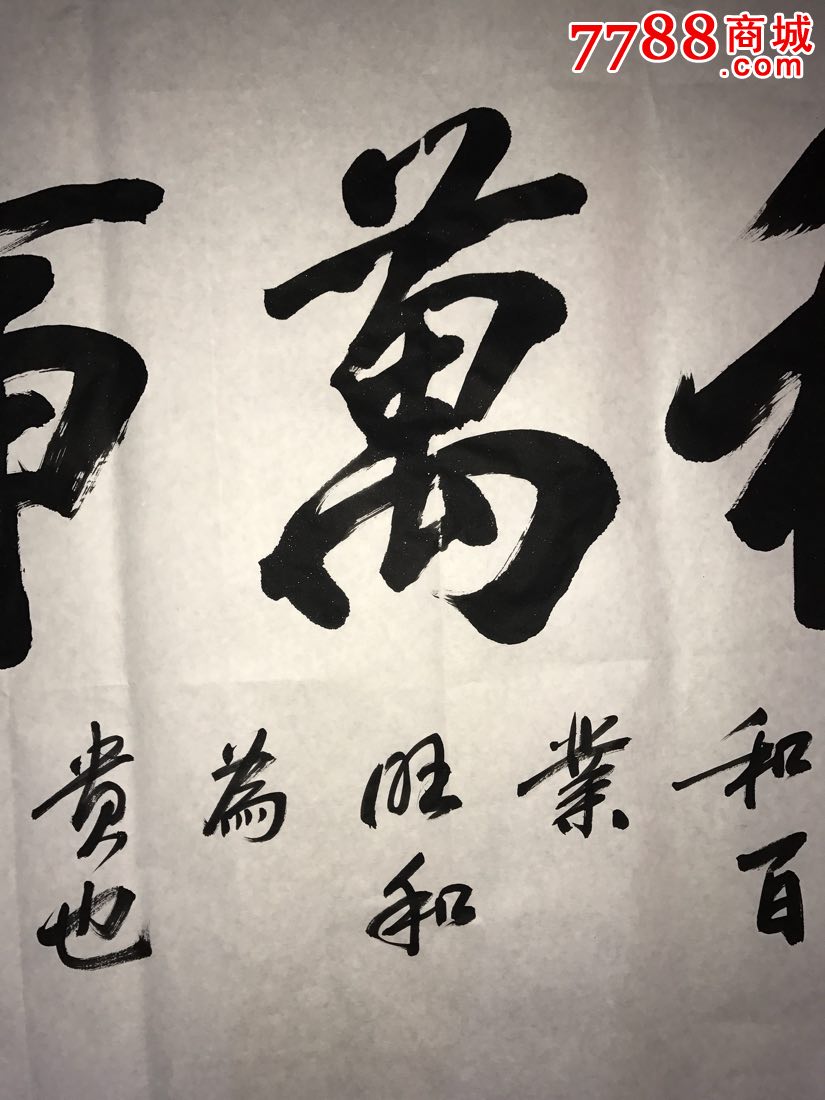 7788商城
.com
萬
和百
業
旺和
為
貴也